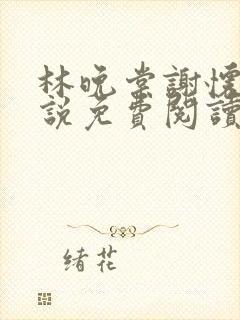 林晚棠謝懷
説免費閱讀
绪花